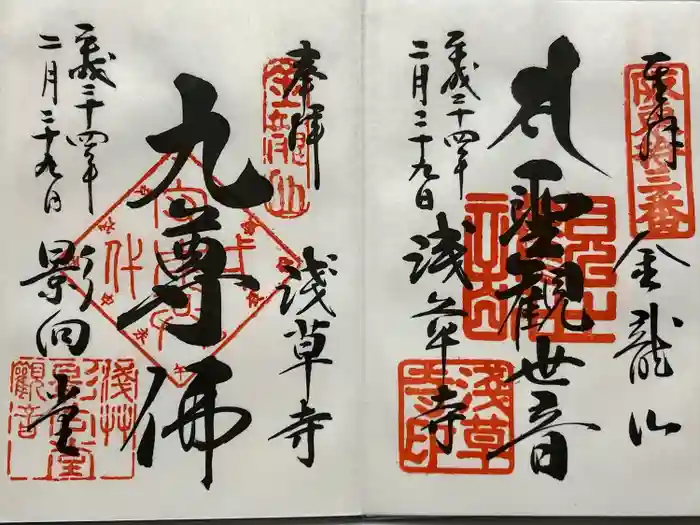 奉拝
坂東第十三番
金龍山
聖観世音
平成二十四年
二月二十九日
浅草寺
浅草寺印
奉拝
金龍山
浅草寺
九尊佛
平成二十四年
二月二十九日
影向堂
浅草
影向堂
観音